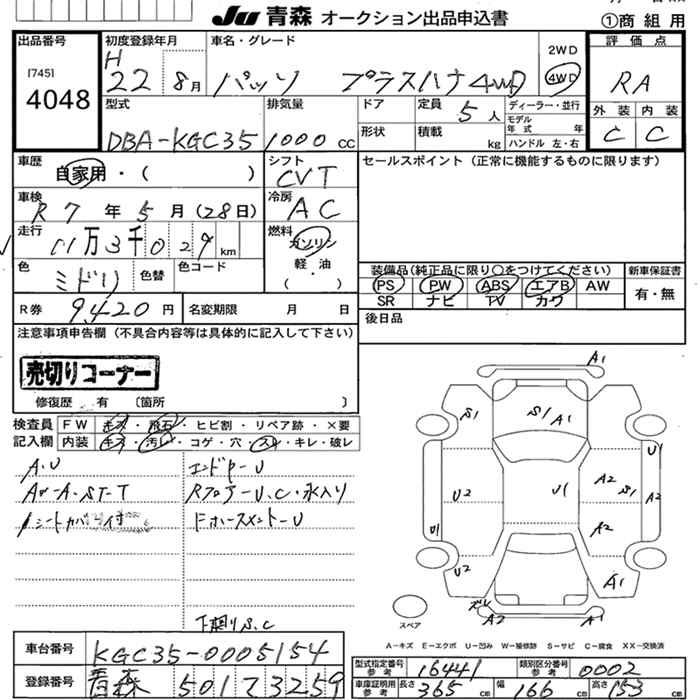 JU 青森 オークション出品申込書
①商 組 用
出品番号
[745]
4048
初度登録年月
H 22 8月
車名・グレード
パッソ プラスハナ 4WD
2WD
4WD
評価点
RA
外装 内装
C C
型式
DBA-KGC35
排気量
1000 CC
ドア
形状
定員 5 人
積載 kg
ディーラー・並行
モデル年式 年
ハンドル 左・右
車歴
自家用・( )
シフト
CVT
セールスポイント(正常に機能するものに限ります)
車検
R 7 年 5 月 (28日)
冷房
AC
走行
11万3千029 km
燃料
ガソリン
軽・油
( ・ )
色
ミドリ
色替
色コード
装備品(純正品に限り○をつけてください)
PS PW ABS エアB AW
SR ナビ TV カワ
新車保証書
有・無
R券 9420円
名変期限 月 日
後日品
注意事項申告欄(不具合内容等は具体的に記入して下さい)
売切りコーナー
修復歴 有 〔箇所 〕
検査員記入欄
FW キズ・飛石・ヒビ割・リペア跡・×要
内装 キズ・汚い・コゲ・穴・スレ・キレ・破レ
A.U
エンドP-U
Rフロアー U.C・水入り
シートカバー付
下廻りS.C
A1
S1
S1
A1
U1
U2
U1
A2
S1
A2
A2
U1
U2
A1
A2
A1
スペア
A-キズ E-エクボ U-凹み W-補修跡 S-サビ C-腐食 XX-交換済
車台番号
KGC35-0005154
登録番号
青森 501 て 3259
型式指定番号 参考 16441
類別区分番号 参考 0002
車庫証明用 参考 長さ 365 cm 幅 166 cm 高さ 153 cm